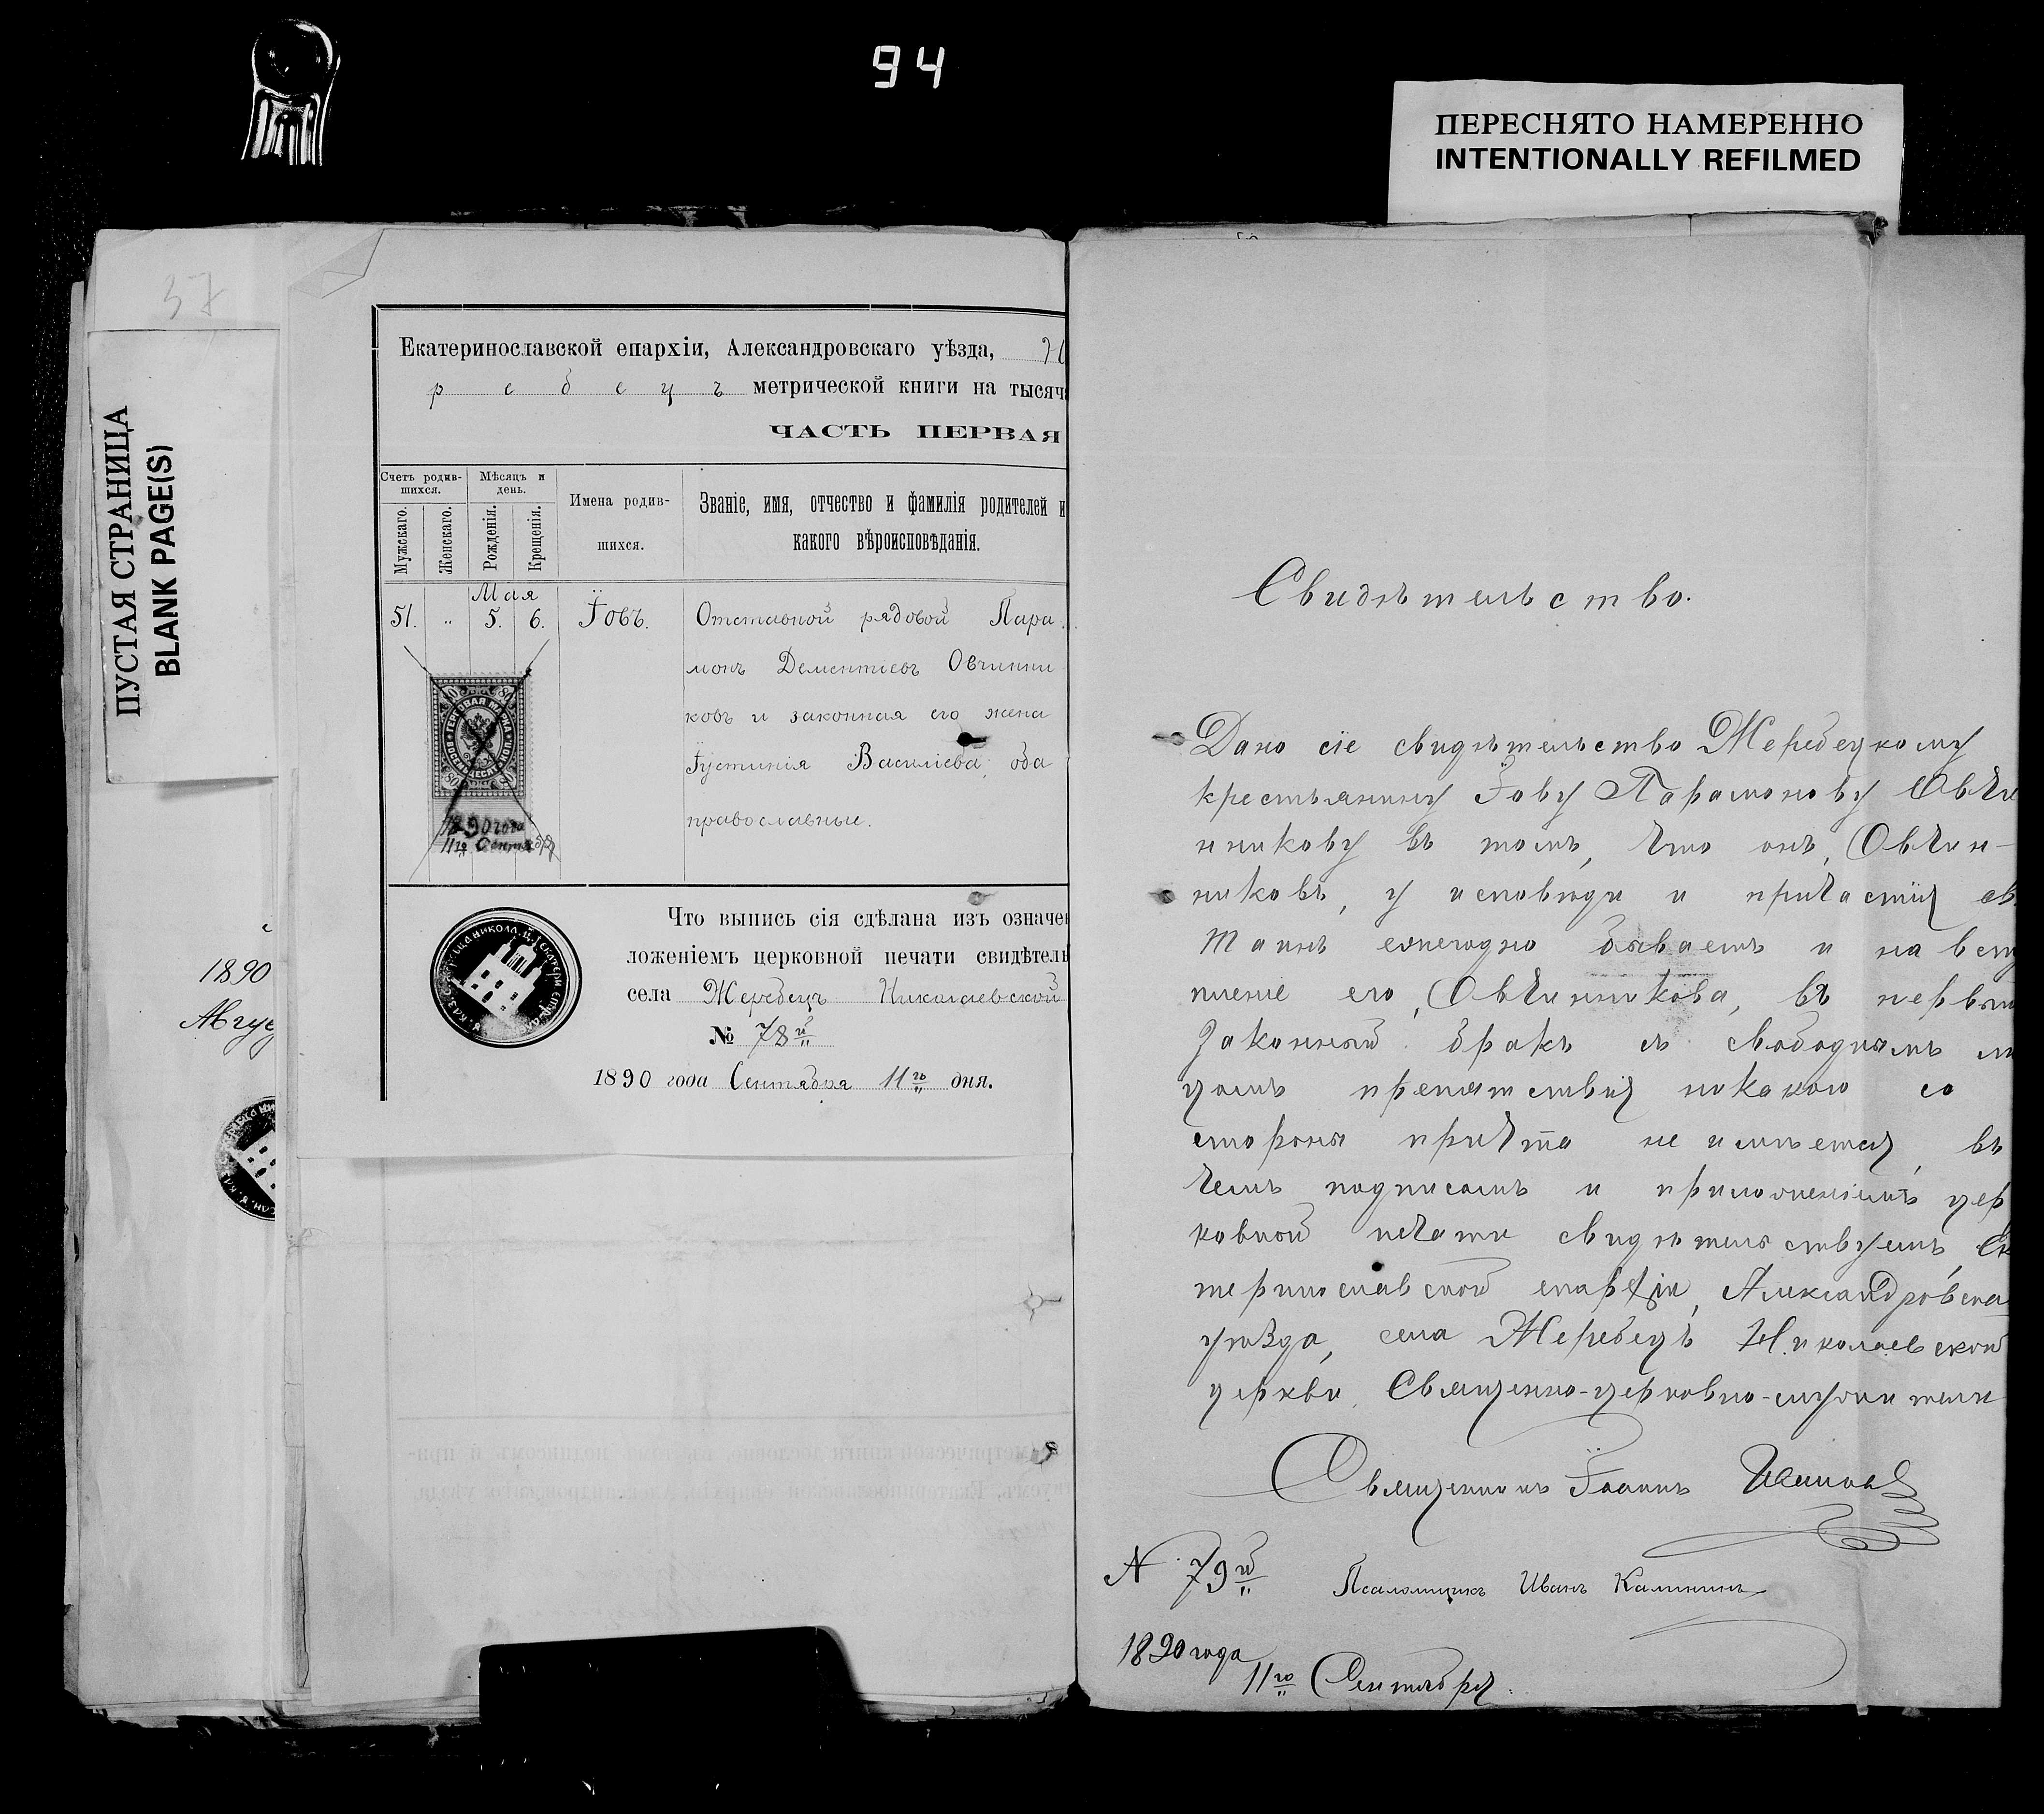 94
ПЕРЕСНЯТО НАМЕРЕННО
INTENTIONALLY REFILMED
37
ПУСТАЯ СТРАНИЦА
BLANK PAGE(S)
1890
Авгус
Екатеринославской епархіи, Александровскаго уѣзда,
ребецъ метрической книги на тысяч
ЧАСТЬ ПЕРВАЯ
Счетъ родив-
шихся.
Мужскаго.
Женскаго.
Мѣсяцъ и
день.
Рожденія.
Крещенія.
Имена родив-
шихся.
Званіе, имя, отчество и фамилія родителей и
какого вѣроисповѣданія.
Мая
51. „ 5. 6. Іовъ. Отставной рядовой Пара
монъ Дементіевъ Овчинни
ковъ и законная его жена
Іустинія Васильева, оба
православные.
80
1890 года
11го Сентября
Что выпись сія сдѣлана изъ означе
ложеніемъ церковной печати свидѣтель
села Жеребецъ Николаевской
№ 78й
1890 года Сентября 11го дня.
Свидѣтельство.
Дано сіе свидѣтельство Жеребецкому
крестьянину Іову Парамонову Овчи
нникову въ томъ, что онъ, Овчин-
никовъ, у исповѣди и причастія св.
Таинъ ежегодно бываетъ и на всту
пленіе его, Овчинникова, въ первый
законный бракъ съ свободнымъ ли
цомъ препятствія никакого со
стороны причта не имѣется, въ
чемъ подписомъ и приложеніемъ цер
ковной печати свидѣтельствуемъ, Ек
теринославской епархіи, Александровска
уѣзда, села Жеребецъ Николаевской
церкви, Священно-церковно-служители
Священникъ Іоаннъ
№ 79й Псаломщикъ Иванъ Калининъ
1890 года
11го Сентября.